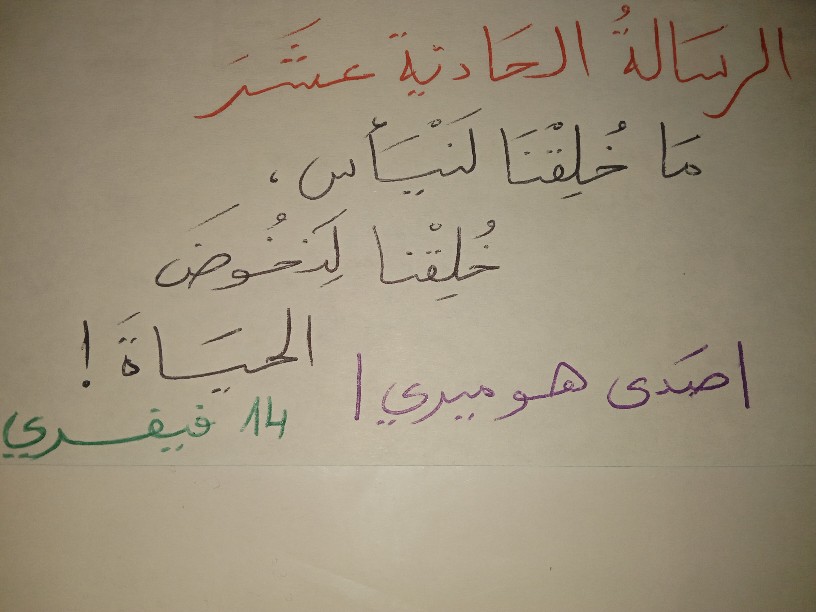 الرسَالةُ الحَادية عشَرَ
مَا خُلِقْنَا لَنَيْيَأس،
خُلِقْنا لِنَخُوضَ
الحيَاةَ !
|صَدى هوميري|
14 فيفري